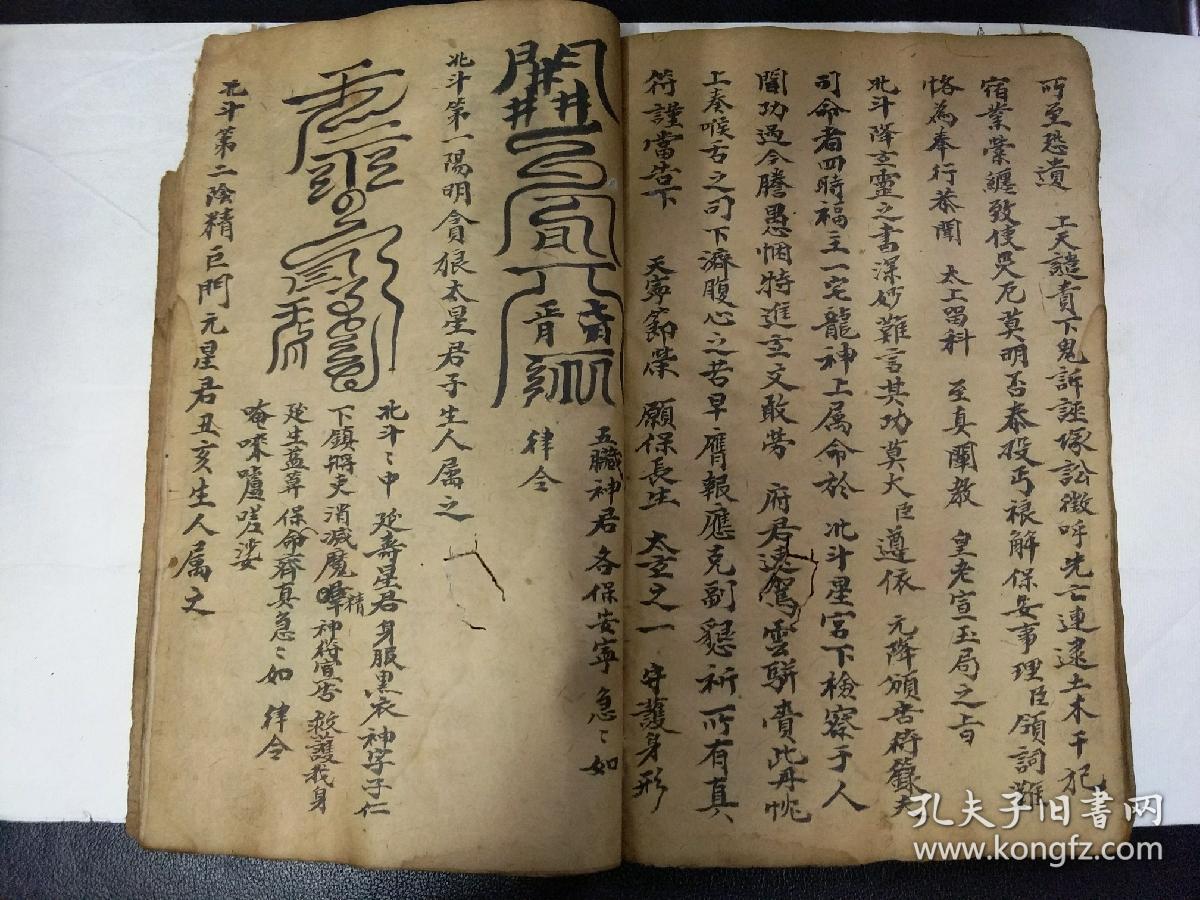 所至恐遺 上天譴責下鬼訴誣塚訟徵呼先亡連逮土木干犯
宿業縈纏致使災厄莫明否泰投丐禳解保安事理臣領詞難
恪為奉行恭聞 太上留科 至真闡教 皇老宣玉局之旨
北斗降玄靈之書深妙難言其功莫大臣遵依 元降頒告符籙夫
司命者四時福主一宅龍神上属命於 北斗星宮下檢察于人
間功過今騰愚悃特進玄文敢勞 府君速駕雲駢賫此丹忱
上奏喉舌之司下濟腹心之苦早膺報應克副懇祈所有真
符謹當告下 天寧節榮 願保長生 太玄之一 守護身形
五臟神君各保安寧急〻如
律令
北斗第一陽明貪狼太星君子生人属之
北斗〻中 延壽星君身服黑衣神字子仁
下鎮 消滅魔精神符宣告救護我身
延生益算保命齊真急〻如 律令
唵
北斗第二陰精巨門元星君丑亥生人属之
孔夫子旧书网
www.kongfz.com